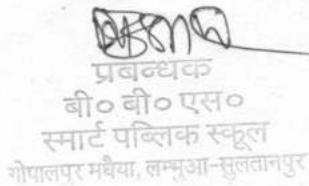 प्रबन्धक
बी० बी० एस०
स्मार्ट पब्लिक स्कूल
गोपालपुर मधैया, लम्भुआ-सुलतानपुर